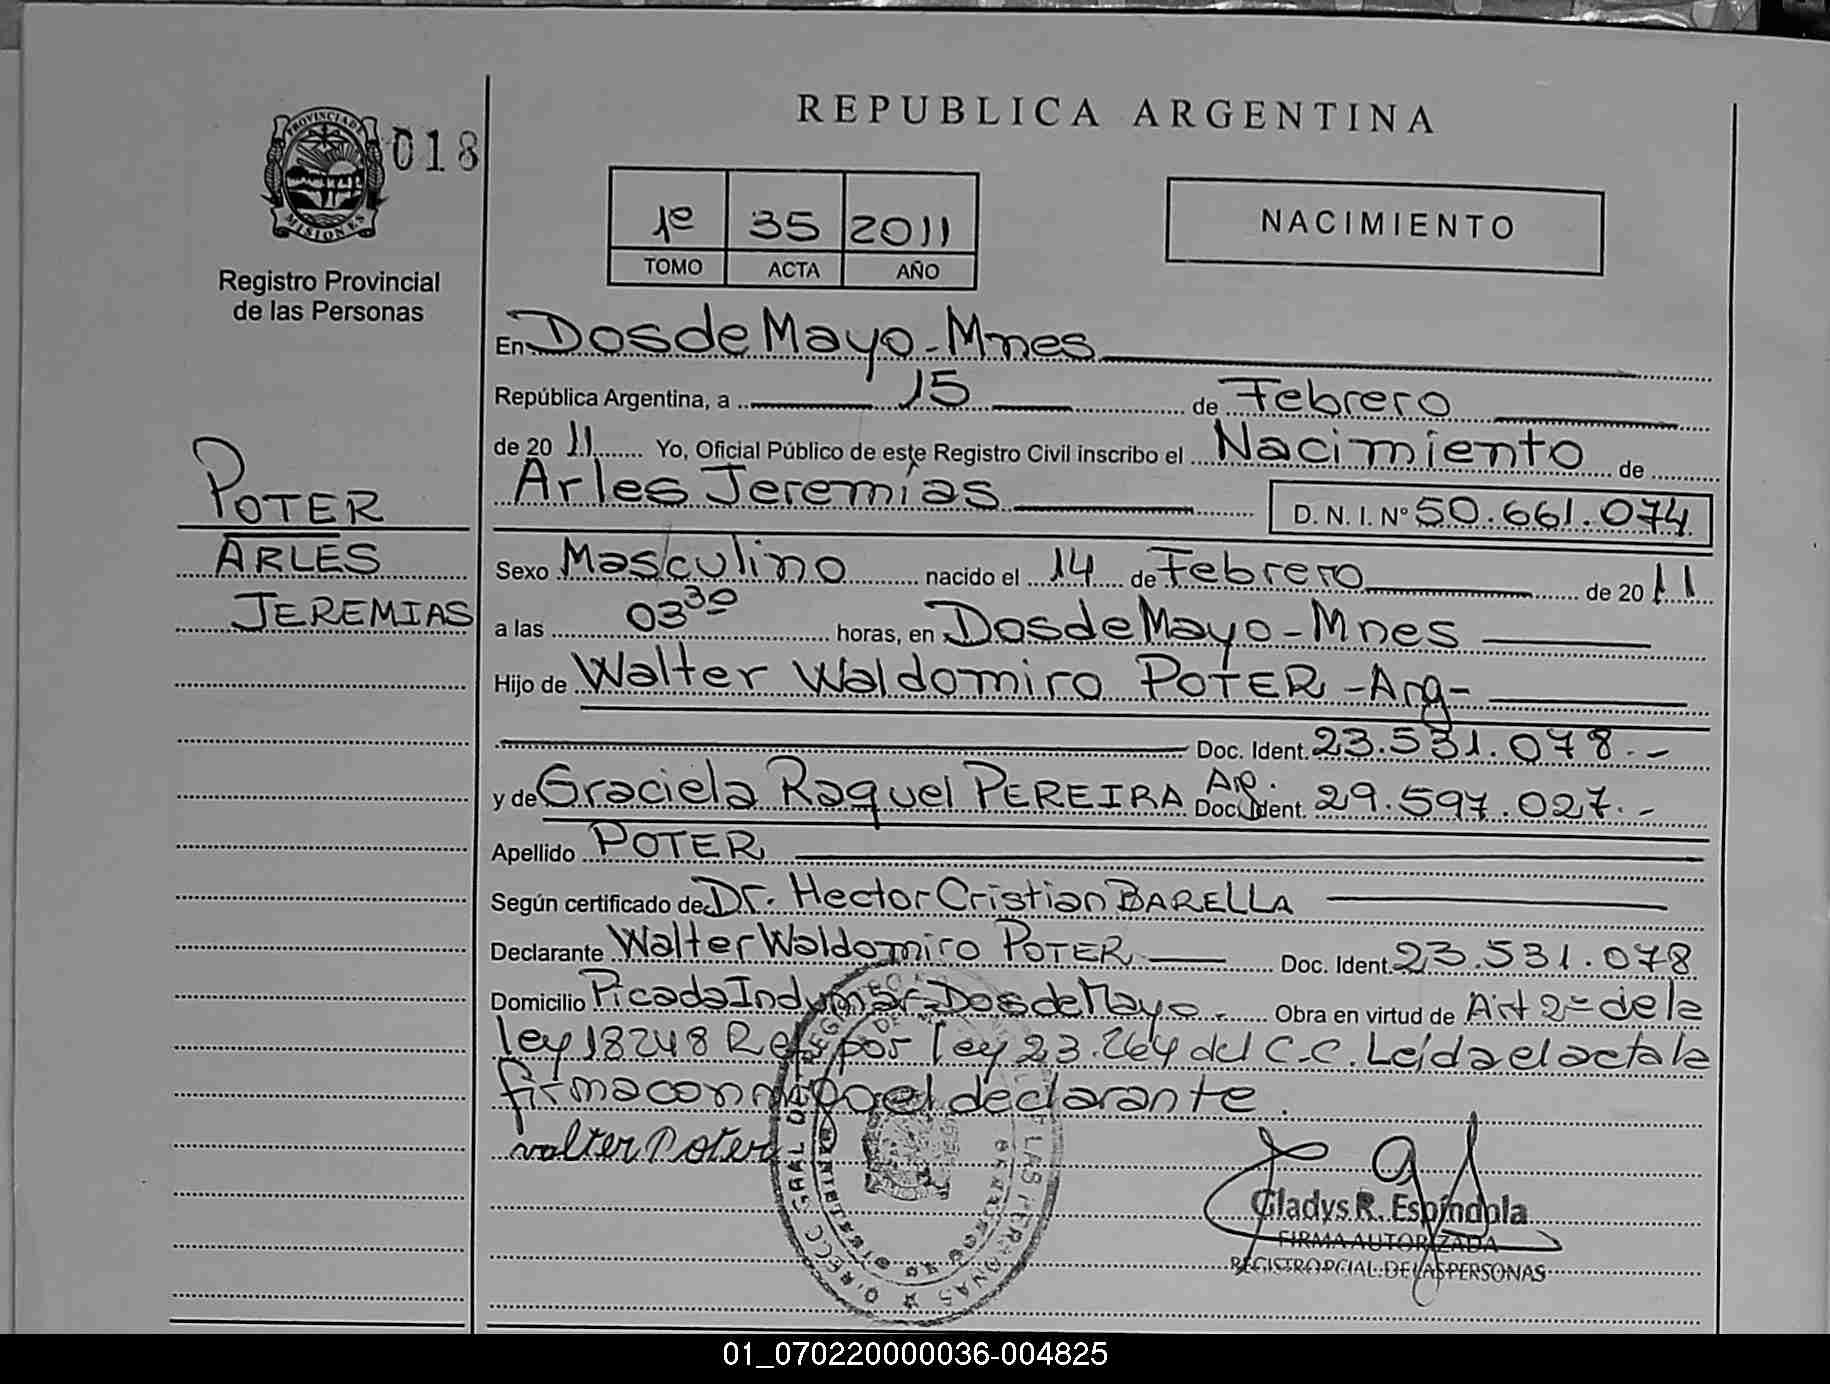 REPUBLICA ARGENTINA
PROVINCIA DE
MISIONES
018
Registro Provincial
de las Personas
1º 35 2011
TOMO ACTA AÑO
NACIMIENTO
POTER
ARLES
JEREMIAS
En Dos de Mayo - Mnes
República Argentina, a 15 de Febrero
de 20 11 Yo, Oficial Público de este Registro Civil inscribo el Nacimiento de
Arles Jeremías D. N. I. Nº 50.661.074
Sexo Masculino nacido el 14 de Febrero de 20 11
a las 03 30 horas, en Dos de Mayo - Mnes
Hijo de Walter Waldomiro POTER - Arg -
Doc. Ident. 23.531.078.-
y de Graciela Raquel PEREIRA Doc. Ident. 29.597.027.-
Apellido POTER
Según certificado de Dr. Hector Cristian BARELLA
Declarante Walter Waldomiro POTER Doc. Ident. 23.531.078
Domicilio Picada Indumar - Dos de Mayo. - Obra en virtud de Art 2º de la
ley 18248 Ref por ley 23.264 del C.C. Leída el acta la
firma conmigo el declarante.
walter Poter
Gladys R. Espíndola
FIRMA AUTORIZADA
REGISTRO PCIAL. DE LAS PERSONAS
01_070220000036-004825